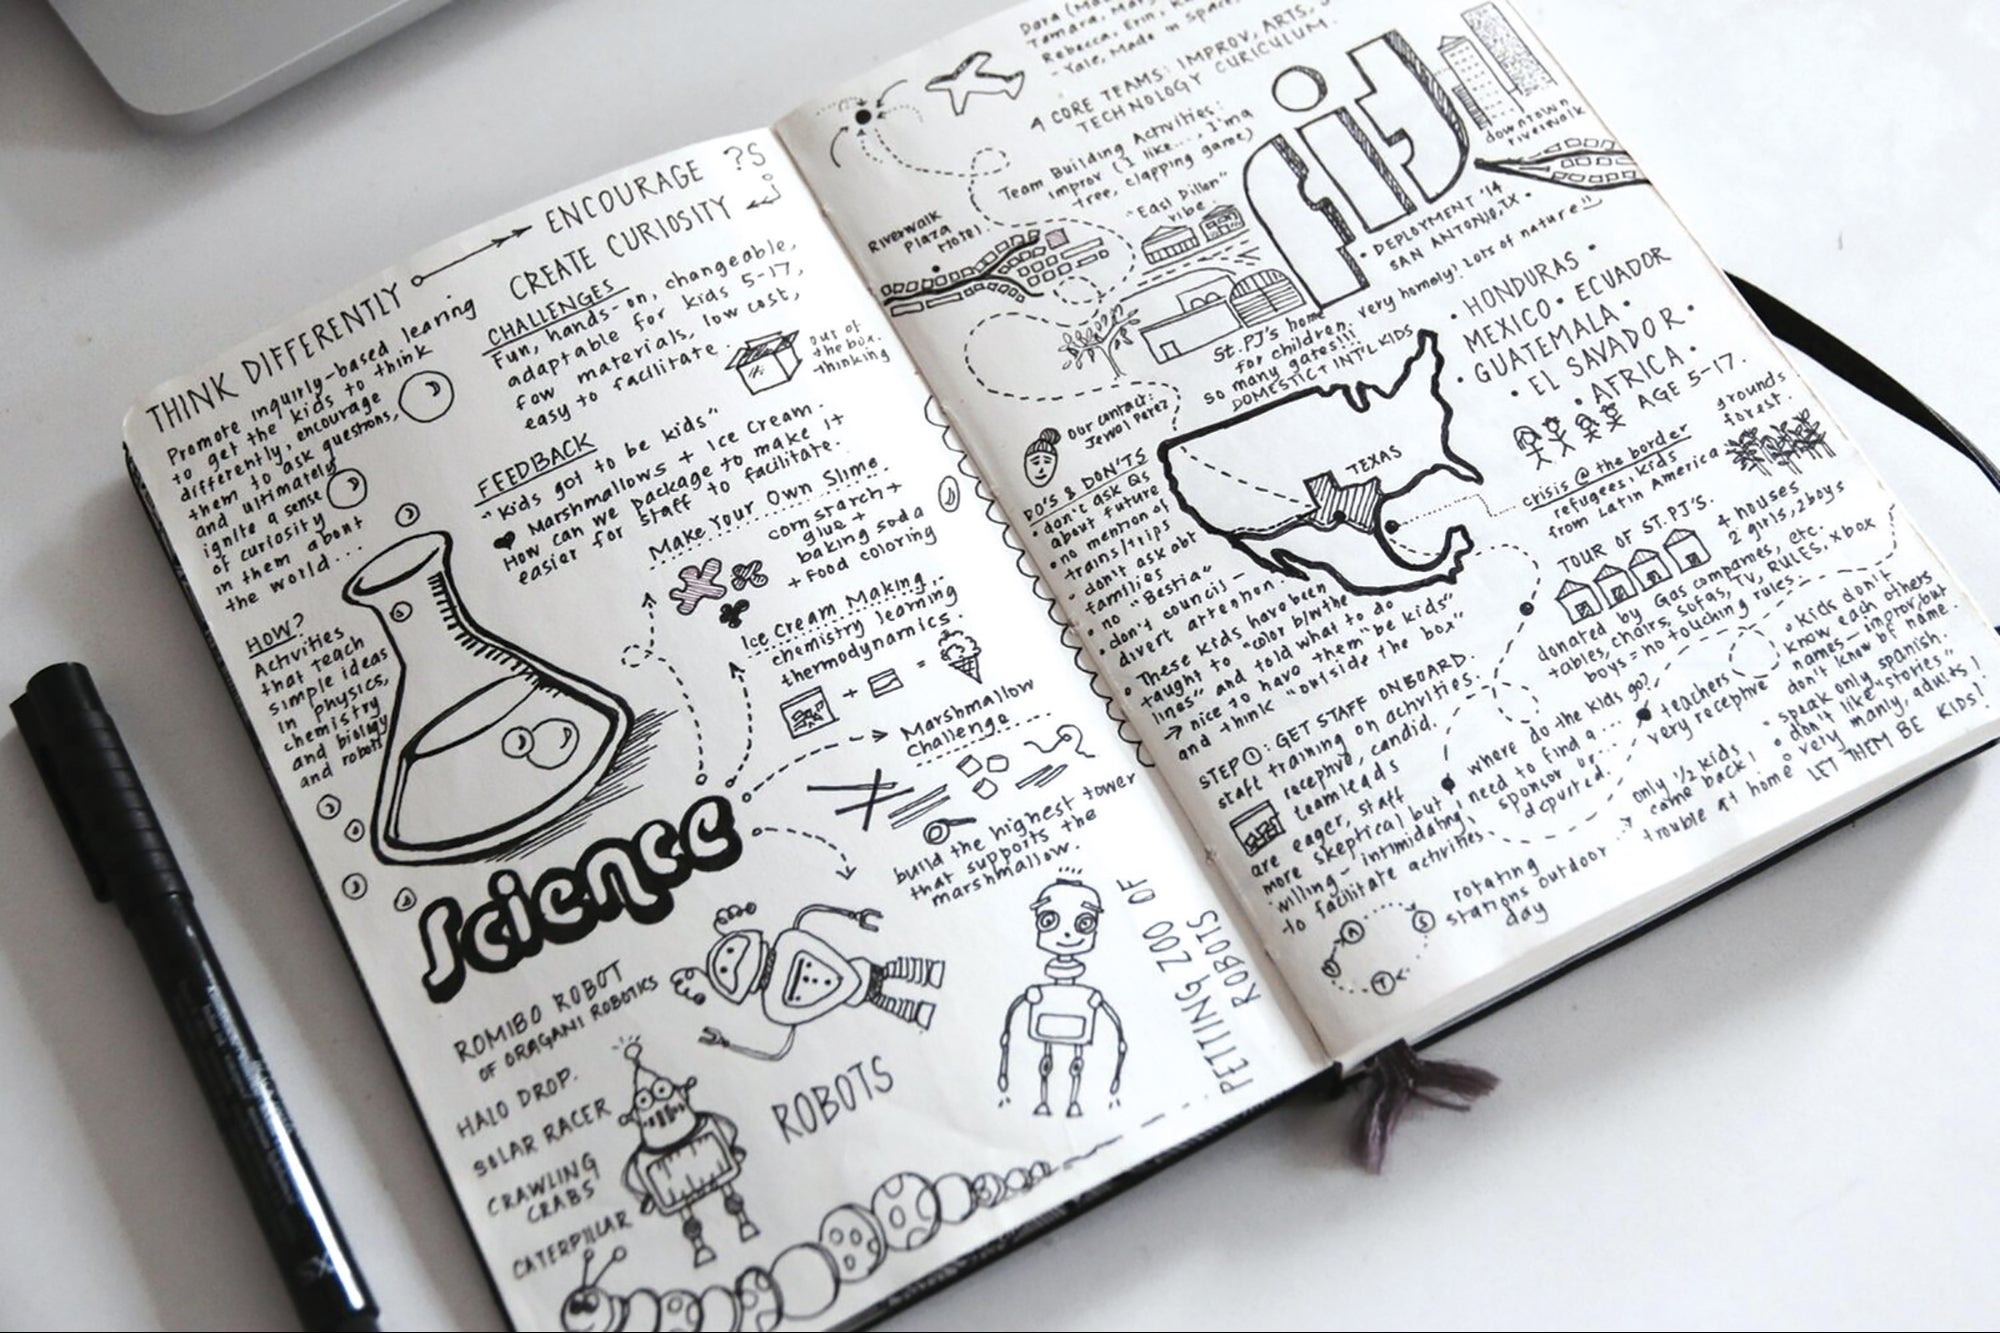 THINK DIFFERENTLY
ENCOURAGE ?S
CREATE CURIOSITY
Promote inquirly-based learing
to get the kids to think
differently, encourage
them to ask questions,
and ultimately
ignite a sense
of curiosity
in them about
the world...
HOW?
Activities
that teach
simple ideas
in physics,
chemistry
and biology
and robots
CHALLENGES
Fun, hands-on, changeable,
adaptable for kids 5-17,
fow materials, low cost,
easy to facilitate
out of
the box.
thinking
FEEDBACK
"kids got to be kids"
Marshmallows + Ice Cream.
How can we package to make it
easier for staff to facilitate.
Make Your Own Slime
corn starch +
glue +
baking soda
+ food coloring
Ice Cream Making
chemistry learning
thermodynamics.
+ =
Marshmallow
Challenge
build the highest tower
that supports the
marshmallow.
Science
ROMIBO ROBOT
OF ORAGANI ROBOTICS
HALO DROP.
SOLAR RACER
CRAWLING
CRABS
CATERPILLAR
ROBOTS
PETTING ZOO OF
ROBOTS
Dara
Tamara,
Rebecca, Erin,
- Yale, Made in Space,
4 CORE TEAMS: IMPROV, ARTS,
TECHNOLOGY CURICULUM.
Team Building Activities:
Improv (I like... I'm a
tree, clapping game)
"East Dillon"
vibe.
Riverwalk
Plaza
Hotel.
fit
downtown
riverwalk
• DEPLOYMENT '14
SAN ANTONIO, TX •
St. PJ's home
for children, very homely! Lots of nature
many gates!!!
SO DOMESTIC + INT'L KIDS
• HONDURAS •
MEXICO • ECUADOR
• GUATEMALA •
• EL SAVADOR •
• AFRICA •
AGE 5-17.
our contact:
Jewel Perez
TEXAS
crisis @ the border
refugees, kids
from Latin America
grounds
forest.
DO'S & DON'TS
• don't ask Qs
about future
• no mention of
trains/trips
• don't ask abt
families
• no "Bestia"
• don't council -
divert attention.
• These kids have been
taught to "color b/w the
lines" and told what to do
→ nice to have them "be kids"
and think "outside the box"
TOUR OF ST. PJ'S.
4 houses
2 girls, 2 boys
donated by Gas companies, etc.
tables, chairs, sofas, TV, RULES, xbox
boys = no touching rules.
• kids don't
know each others
names - improv, but
don't know of name.
• speak only spanish.
• don't like "stories"
• very manly, adults!
LET THEM BE KIDS!
STEP 1: GET STAFF ONBOARD.
staff training on activities.
receptive, candid.
team leads
are eager, staff
more skeptical but
willing - intimidating
to facilitate activities.
where do the kids go?
need to find a...
sponsor or
deported.
teachers
very receptive
only 1/2 kids
came back!
trouble at home
rotating
stations outdoor
day
A
S
T